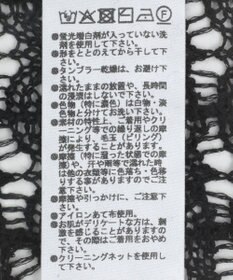 ●蛍光増白剤が入っていない洗
剤を使用して下さい。
●形をととのえてから干して下
さい。
●タンブラー乾燥は、お避け下
さい。
●濡れたままの放置や、長時間
の浸漬はしないで下さい。
●色物（特に濃色）は白物、淡
色物と分けてお洗い下さい。
●素材の特性上、ご着用やクリ
ーニング等での繰り返しの摩
擦により、毛玉（ピリング）
が発生することがあります。
●摩擦（特に湿った状態での摩
擦）や、汗や雨等で濡れた時
は他の衣類等に色落ち・色移
りする事がありますのでご注
意下さい。
●摩擦や引っかけに、ご注意下
さい。
●アイロンあて布使用。
●お肌がデリケートな方は、刺
激を感じることがありますの
で、その際はご着用をおやめ
下さい。
●クリーニングネットを使用し
て下さい。